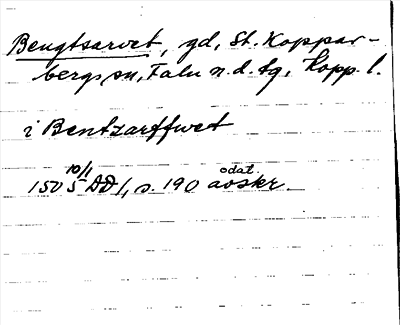 Bengtsarvet, gd, St. Koppar-
bergs sn, Falu n. d. tg, Kopp. l.
i Bentzarffwet
1505 10/1 DD 1, s. 190 odat avskr.